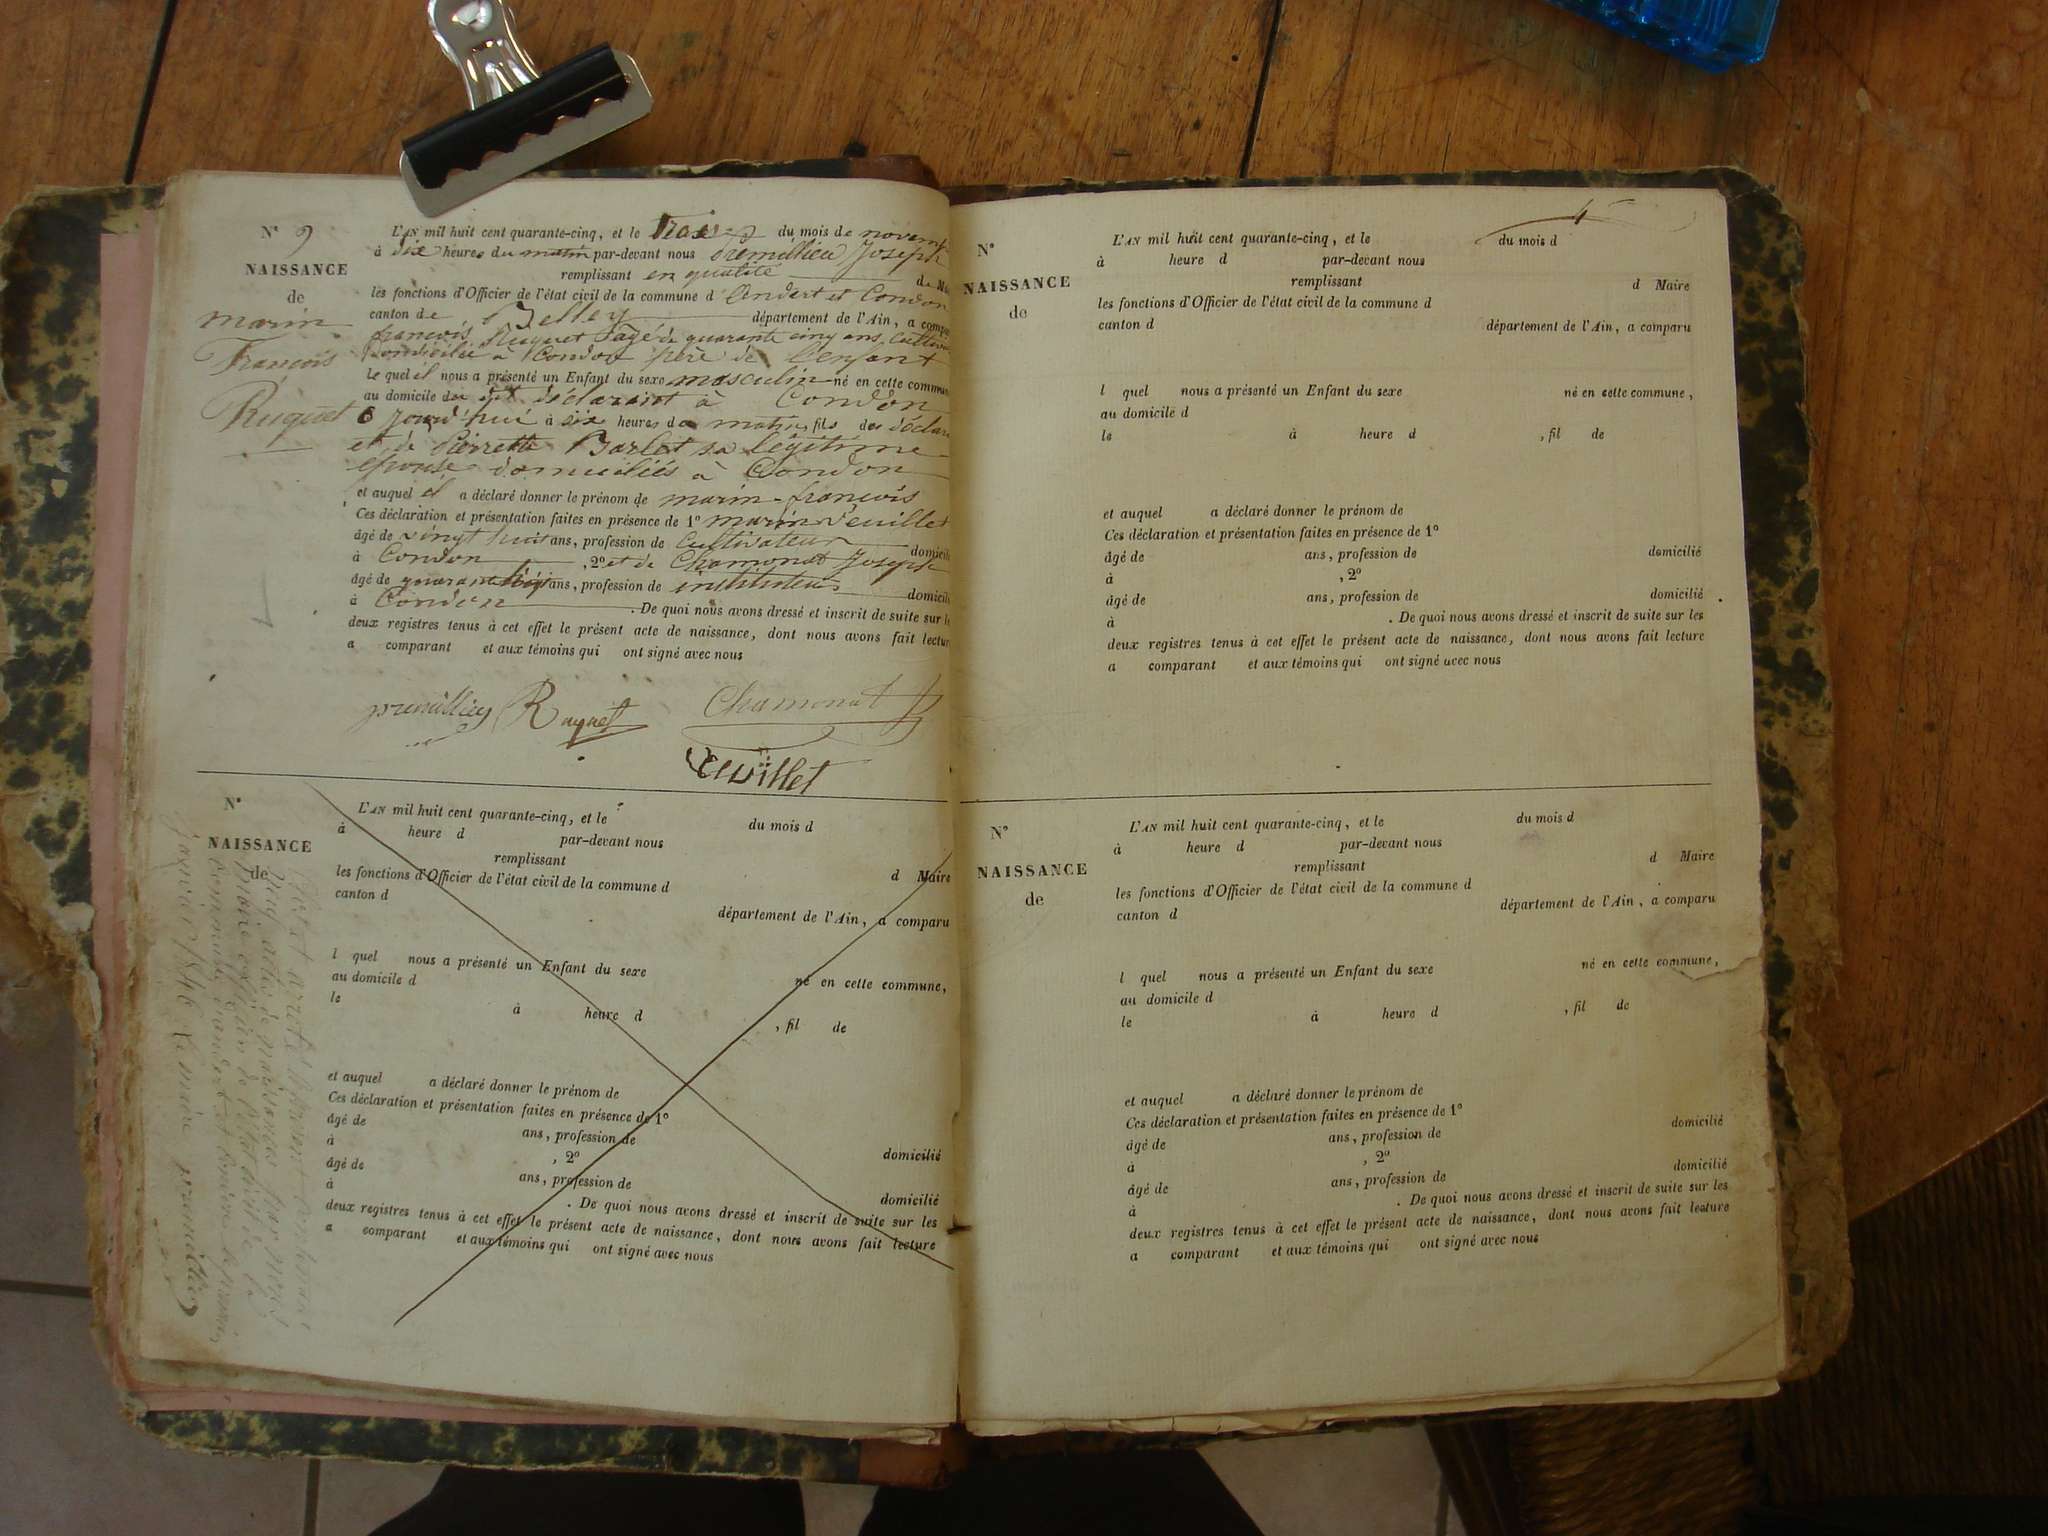 N° 9
NAISSANCE
de
marin
François
Ruguet
L'AN mil huit cent quarante-cinq, et le du mois de novem
à six heures du matin par-devant nous premillieu Joseph
remplissant en qualité de M
les fonctions d'Officier de l'état civil de la commune d'andert et Condon
canton de Belley département de l'Ain, a compa
françois Ruguet agé de quarante cinq ans, cultiva
domicilié à Condon père de l'enfant
le quel il nous a présenté un Enfant du sexe masculin né en cette commun
au domicile du dit déclarant à Condon
jourd'hui à six heures du matin, fils des déclar
et de Pierrette Barlet sa légitime
épouse domiciliés à Condon
et auquel il a déclaré donner le prénom de marin-françois
Ces déclaration et présentation faites en présence de 1° marin Veuillet
âgé de vingt huit ans, profession de Cultivateur domicili
à Condon , 2° et de Chamonat Joseph
âgé de quarante ans, profession de instituteur domicili
à Condon . De quoi nous avons dressé et inscrit de suite sur l
deux registres tenus à cet effet le présent acte de naissance, dont nous avons fait lectur
a comparant et aux témoins qui ont signé avec nous
premillieu Ruguet Chamonat
Veuillet
N°
NAISSANCE
de
L'AN mil huit cent quarante-cinq, et le du mois d
à heure d par-devant nous
remplissant d Maire
les fonctions d'Officier de l'état civil de la commune d
canton d département de l'Ain, a comparu
l quel nous a présenté un Enfant du sexe né en cette commune,
au domicile d
le à heure d , fil de
et auquel a déclaré donner le prénom de
Ces déclaration et présentation faites en présence de 1°
âgé de ans, profession de domicilié
à , 2°
âgé de ans, profession de domicilié
à . De quoi nous avons dressé et inscrit de suite sur les
deux registres tenus à cet effet le présent acte de naissance, dont nous avons fait lecture
a comparant et aux témoins qui ont signé avec nous
arrêté le présent
neuf actes de naissances par nous
officier de l'état civil
janvier 1846 Le maire premillieu
N°
NAISSANCE
de
L'AN mil huit cent quarante-cinq, et le du mois d
à heure d par-devant nous
remplissant d Maire
les fonctions d'Officier de l'état civil de la commune d
canton d département de l'Ain, a comparu
l quel nous a présenté un Enfant du sexe né en cette commune,
au domicile d
le à heure d , fil de
et auquel a déclaré donner le prénom de
Ces déclaration et présentation faites en présence de 1°
âgé de ans, profession de domicilié
à , 2°
âgé de ans, profession de domicilié
à . De quoi nous avons dressé et inscrit de suite sur les
deux registres tenus à cet effet le présent acte de naissance, dont nous avons fait lecture
a comparant et aux témoins qui ont signé avec nous
N°
NAISSANCE
de
L'AN mil huit cent quarante-cinq, et le du mois d
à heure d par-devant nous
remplissant d Maire
les fonctions d'Officier de l'état civil de la commune d
canton d département de l'Ain, a comparu
l quel nous a présenté un Enfant du sexe né en cette commune,
au domicile d
le à heure d , fil de
et auquel a déclaré donner le prénom de
Ces déclaration et présentation faites en présence de 1°
âgé de ans, profession de domicilié
à , 2°
âgé de ans, profession de domicilié
à . De quoi nous avons dressé et inscrit de suite sur les
deux registres tenus à cet effet le présent acte de naissance, dont nous avons fait lecture
a comparant et aux témoins qui ont signé avec nous